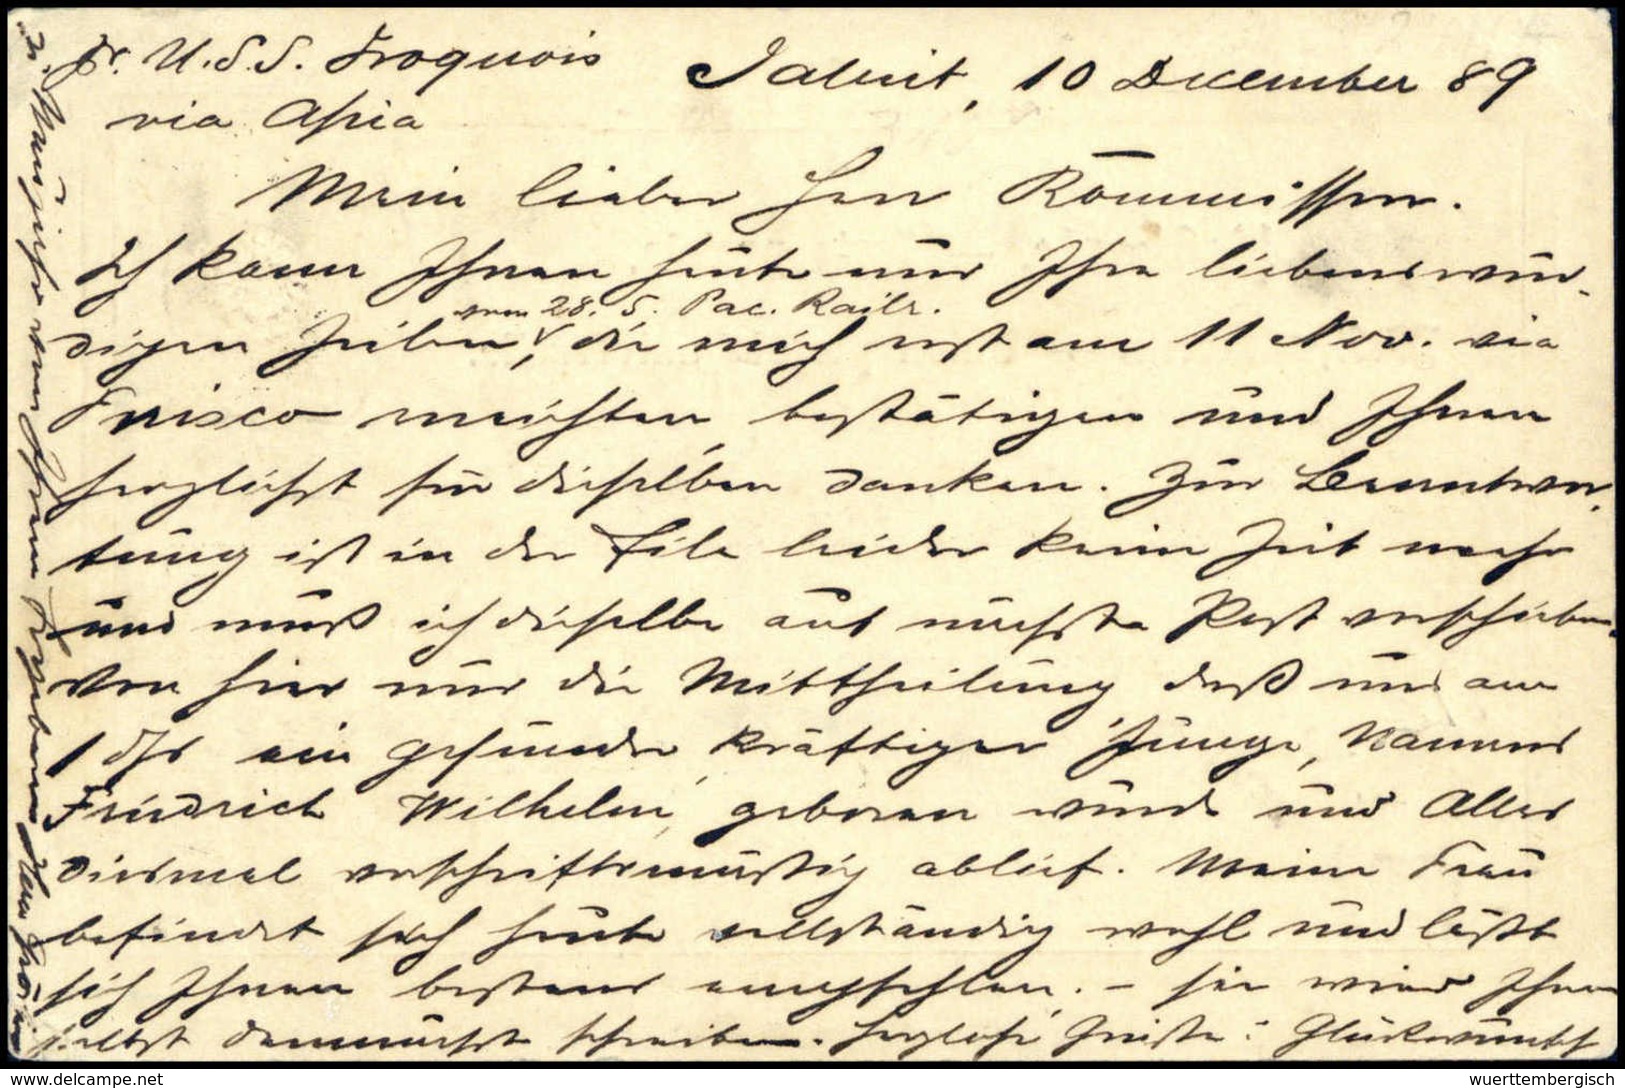 pr. U.S.S. Iroquois
via Apia
Jaluit, 10 December 89
Mein lieber Herr Kommissar.
Ich kann Ihnen heute nur Ihre liebenswür-
vom 28. S. Pac. Railr.
digen Zeilen, die mich erst am 11 Nov. via
Frisco erreichten, bestätigen und Ihnen
herzlichst für dieselben danken. Zur Beantwor-
tung ist in der Eile leider keine Zeit mehr
und muß ich dieselbe auf nächste Post verschieben.
Von hier nur die Mittheilung daß uns am
1 dss ein gesunder kräftiger Junge, Namens
Friedrich Wilhelm, geboren wurde und Alles
diesmal vorschriftsmäßig ablief. Meine Frau
befindet sich heute vollständig wohl und läßt
sich Ihnen bestens empfehlen. – sie wird Ihnen
selbst demnächst schreiben. Herzliche Grüße & Glückwünsche
von Ihrem Ergebenen
www.delcampe.net
wuerttembergisch